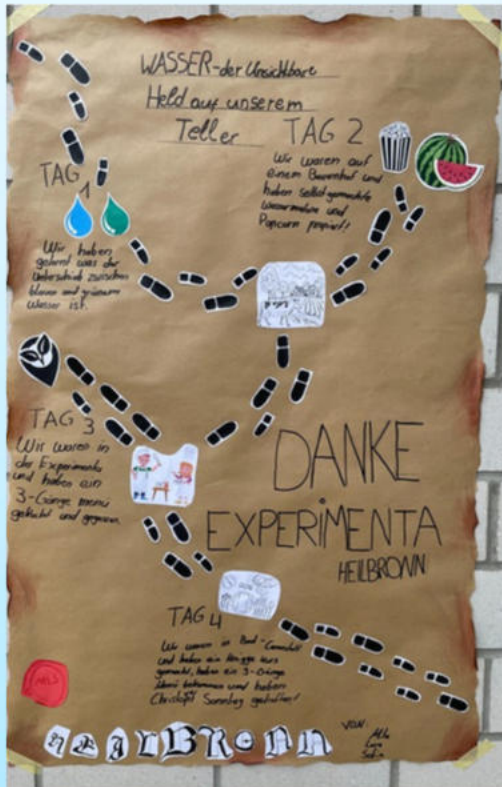 WASSER-der Unsichtbare
Held auf unserem
Teller
TAG 1
Wir haben
gelernt was der
Unterschied zwischen
blauem und grünem
Wasser ist.
TAG 2
Wir waren auf
einem Bauernhof und
haben selbstgemachte
Wassermelone und
Popcorn probiert!
TAG 3
Wir waren in
der Experimenta
und haben ein
3-Gänge menü
gekocht und gegessen
DANKE
EXPERIMENTA
HEILBRONN
TAG 4
Wir waren in Bad-
und haben ein Knigge kurs
gemacht, haben ein 3-Gänge
Menü bekommen und haben
Christoph Sonntag getroffen!
HEILBRONN
VON: